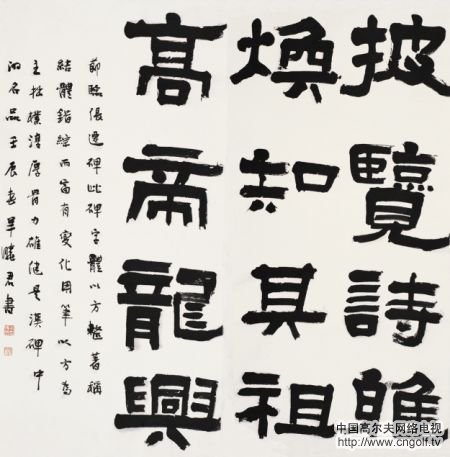 披覽詩雅
煥知其祖
高帝龍興
節臨張遷碑此碑字體以方整著稱
結體錯綜而富有變化用筆以方為
主拙樸淳厚骨力雄健是漢碑中
的名品壬辰春君書
中国高尔夫网络电视
http://www.cngolf.tv